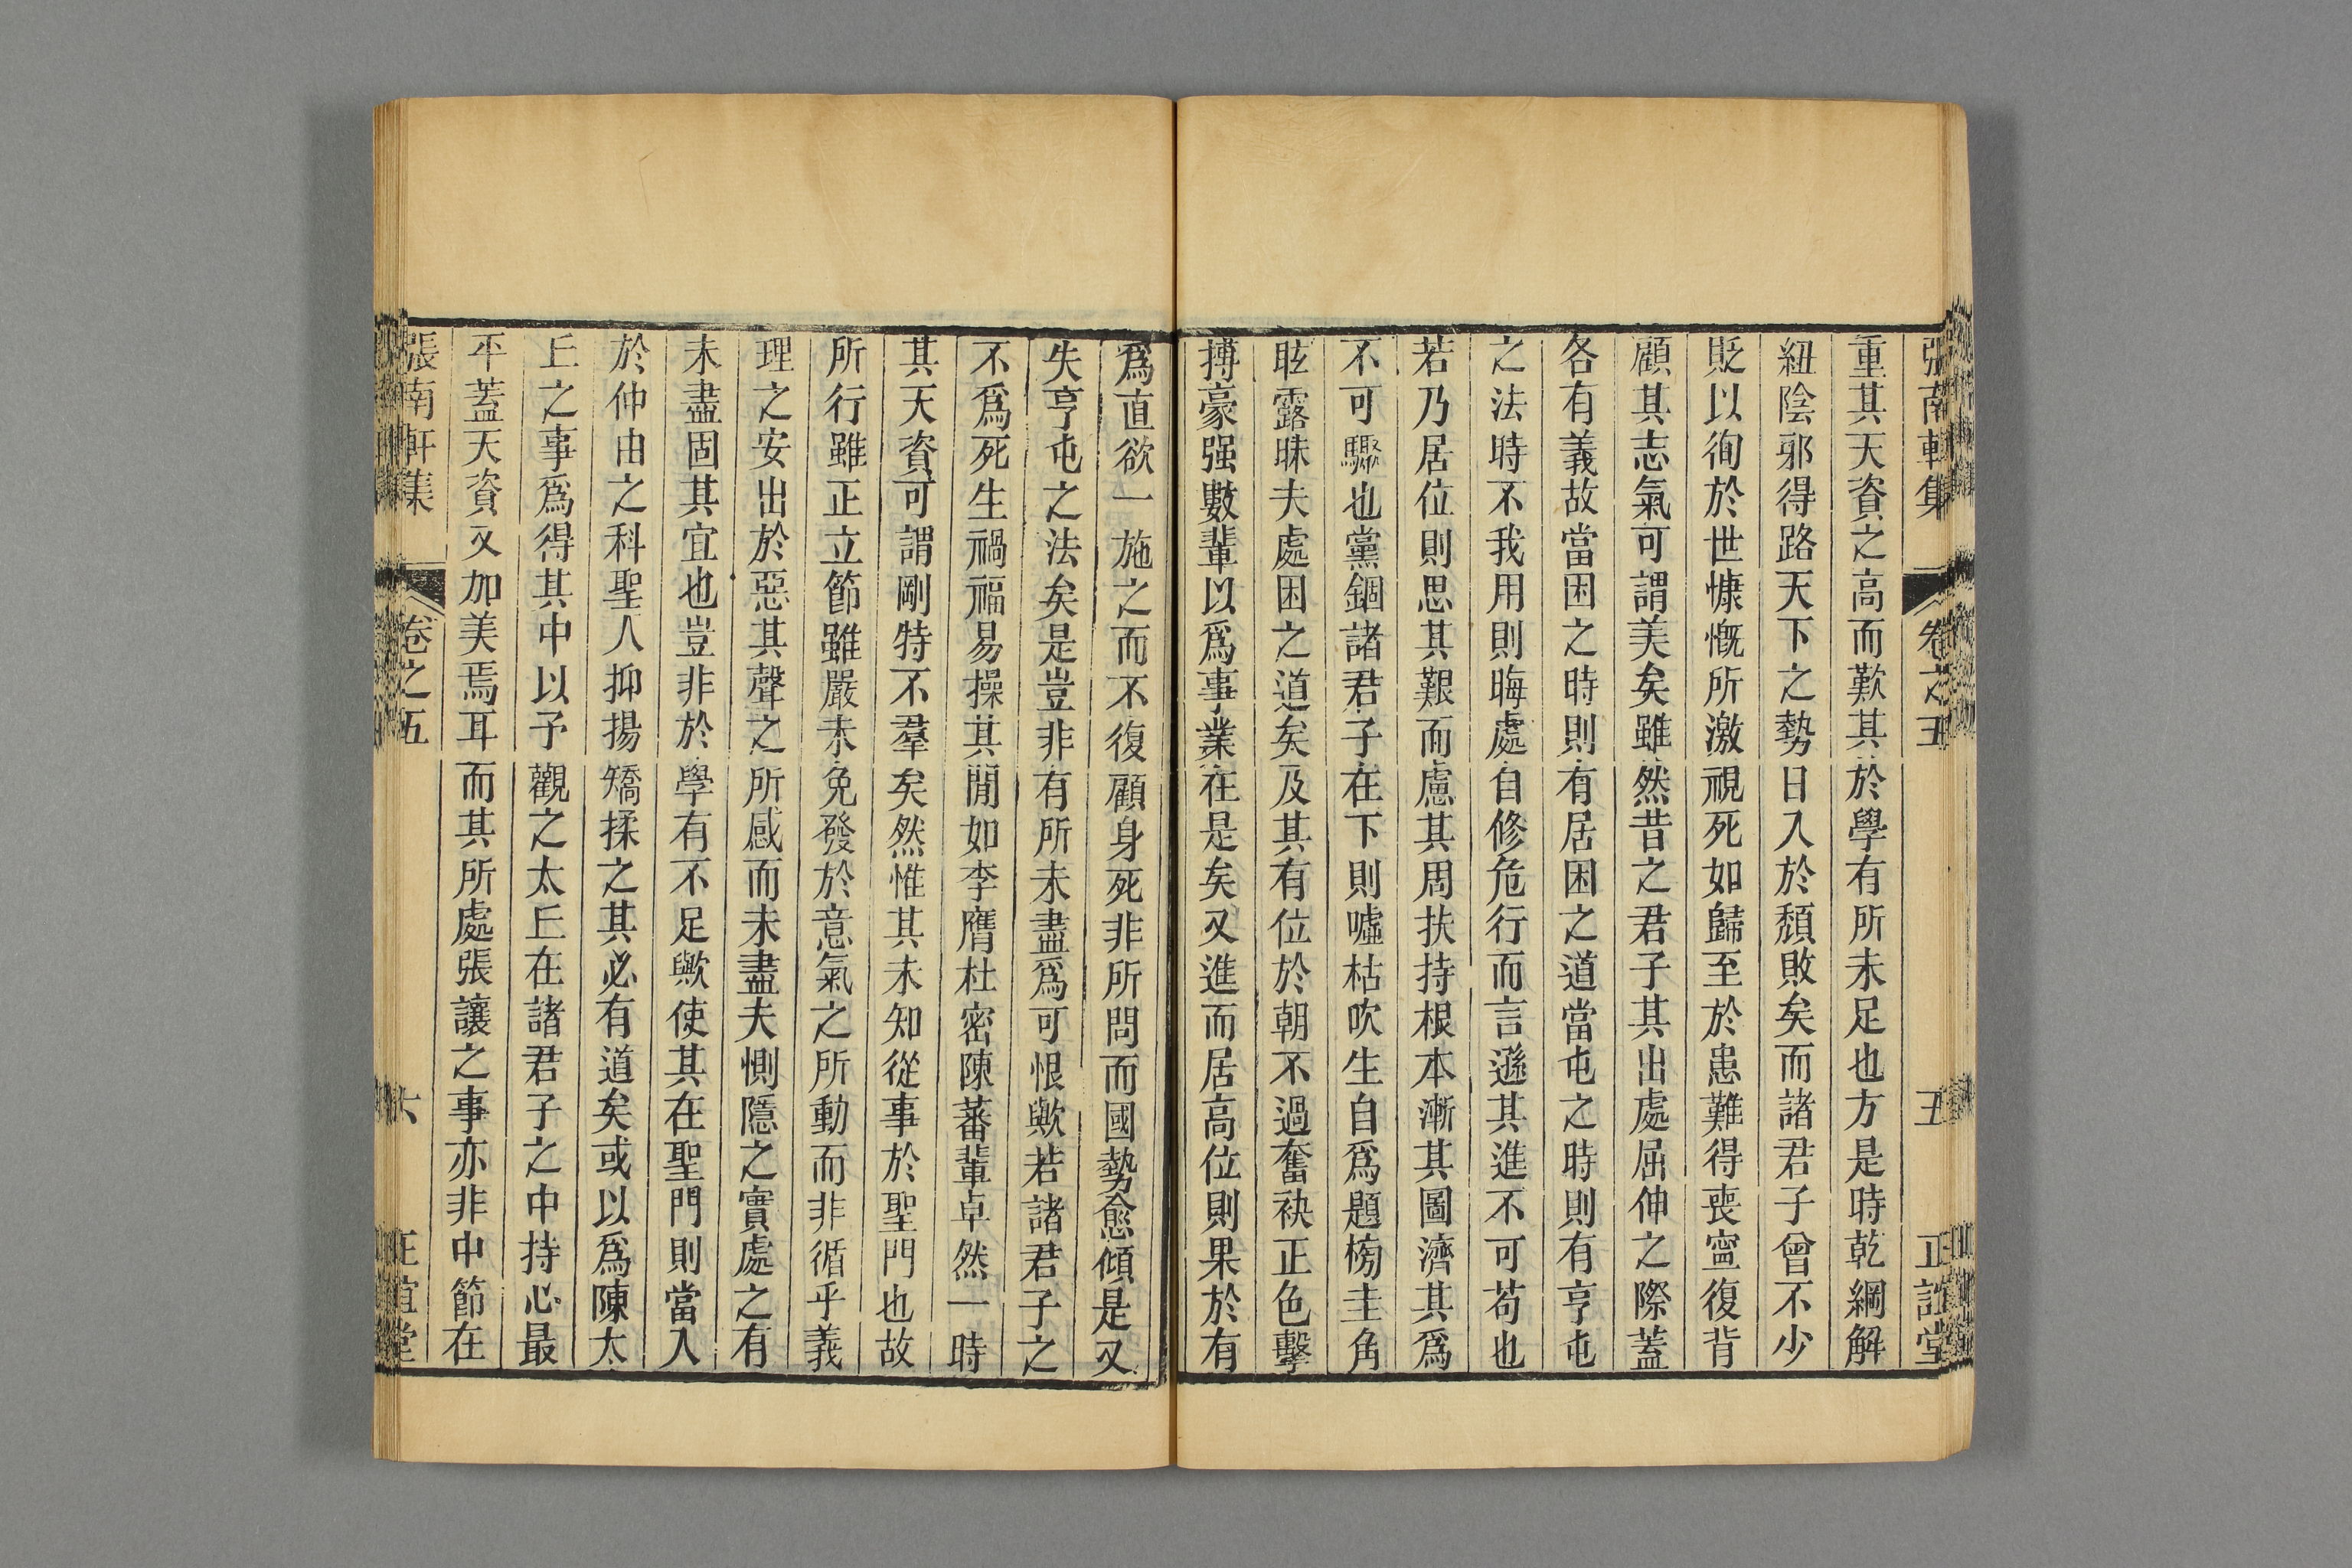 張南軒集 卷之五 五 正誼堂
重其天資之高而歎其於學有所未足也方是時乾綱解
紐陰邪得路天下之勢日入於頹敗矣而諸君子曾不少
貶以徇於世慷慨所激視死如歸至於患難得喪寧復背
顧其志氣可謂美矣雖然昔之君子其出處屈伸之際蓋
各有義故當困之時則有居困之道當屯之時則有亨屯
之法時不我用則晦處自修危行而言遜其進不可苟也
若乃居位則思其艱而慮其周扶持根本漸其圖濟其爲
不可驟也黨錮諸君子在下則噓枯吹生自爲題榜圭角
眩露昧夫處困之道矣及其有位於朝不過奮袂正色擊
搏豪强數輩以爲事業在是矣又進而居高位則果於有
爲直欲一施之而不復顧身死非所問而國勢愈傾是又
失亨屯之法矣是豈非有所未盡爲可恨歟若諸君子之
不爲死生禍福易操其間如李膺杜密陳蕃輩卓然一時
其天資可謂剛特不羣矣然惟其未知從事於聖門也故
所行雖正立節雖嚴未免發於意氣之所動而非循乎義
理之安出於惡其聲之所感而未盡夫惻隱之實處之有
未盡固其宜也豈非於學有不足歟使其在聖門則當入
於仲由之科聖人抑揚矯揉之其必有道矣或以爲陳太
丘之事爲得其中以予觀之太丘在諸君子之中持心最
平蓋天資又加美焉耳而其所處張讓之事亦非中節在
張南軒集 卷之五 六 正誼堂